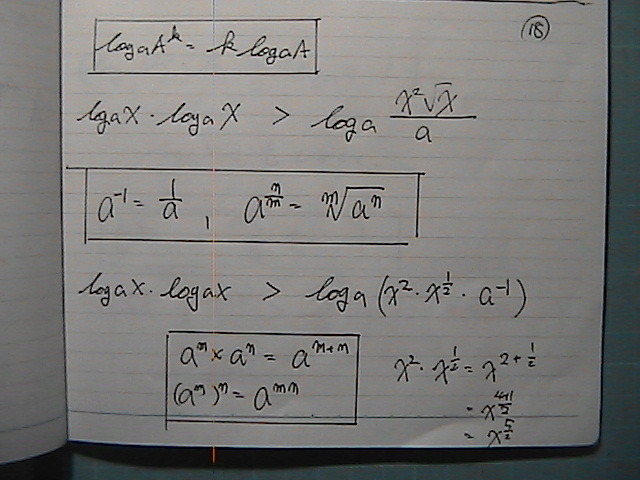 ⑱
logₐAᵏ = k logₐA
logₐX · logₐX > logₐ x²√x / a
a⁻¹ = 1/a , a^(n/m) = ᵐ√(aⁿ)
logₐx · logₐx > logₐ(x² · x^(1/2) · a⁻¹)
aᵐ × aⁿ = aᵐ⁺ⁿ
(aᵐ)ⁿ = aᵐⁿ
x² · x^(1/2) = x^(2+1/2)
= x^((4+1)/2)
= x^(5/2)